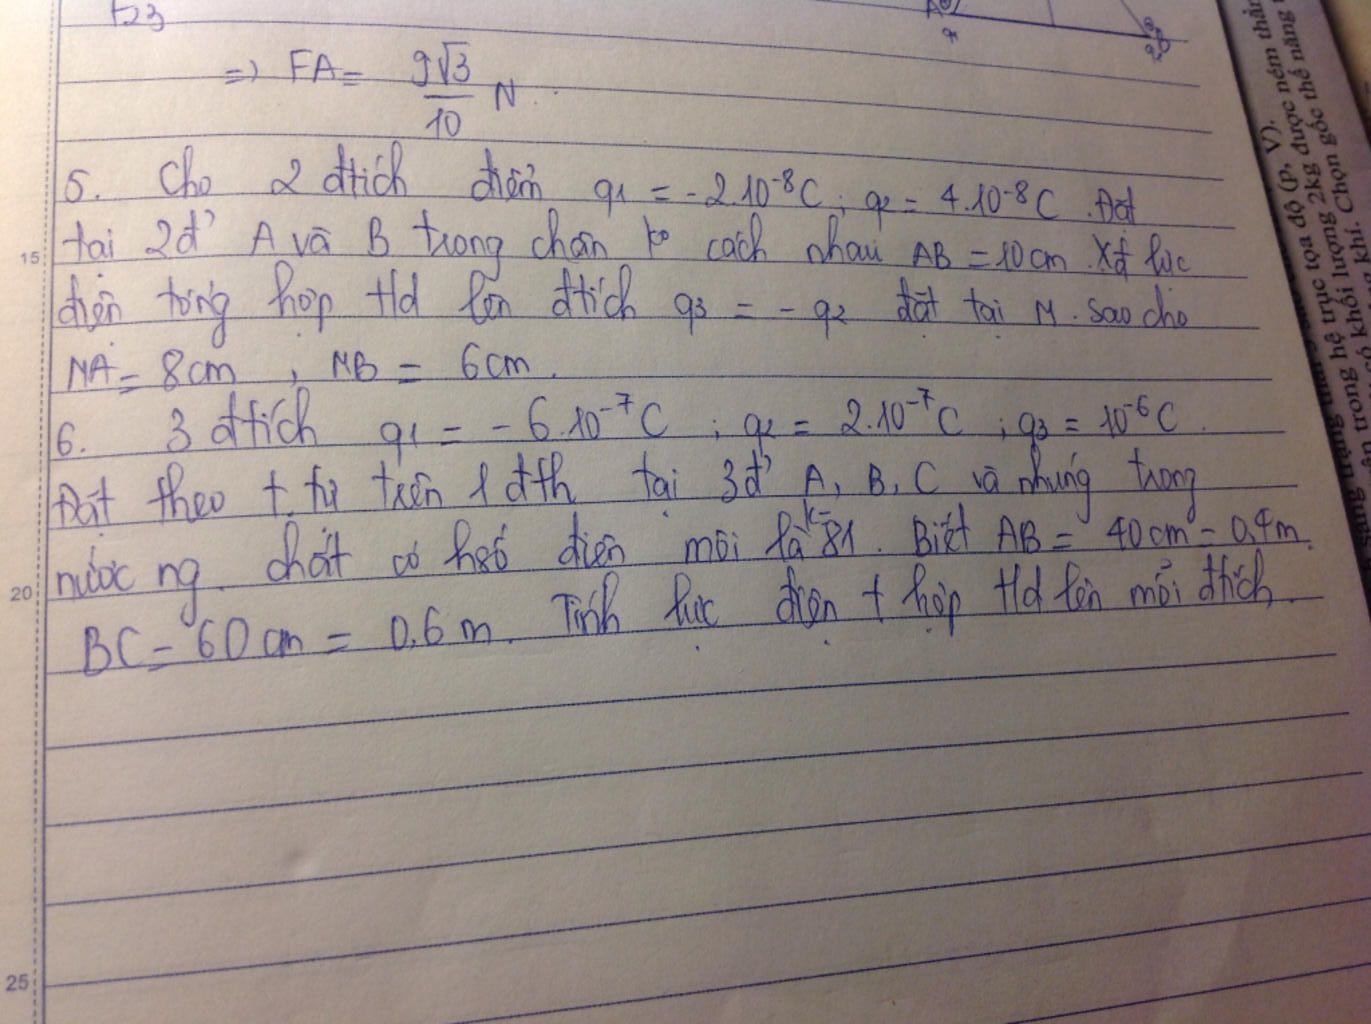 F23
=> FA = 9√3/10 N.
5. Cho 2 đtích điểm q1 = -2.10⁻⁸C ; q2 = 4.10⁻⁸C. Đặt
15
tại 2đ' A và B trong chân ko cách nhau AB = 10cm. Xđ lực
điện tổng hợp t/d lên đtích q3 = - q2 đặt tại M. sao cho
MA = 8cm , MB = 6cm.
6. 3 đtích q1 = - 6.10⁻⁷C ; q2 = 2.10⁻⁷C ; q3 = 10⁻⁶C.
Đặt theo t.tự trên 1 đth tại 3đ' A, B, C và nhúng trong
nước ng. chất có hsố điện môi là 81. Biết AB = 40cm = 0,4m.
20
BC = 60cm = 0,6m. Tính lực điện t hợp t/d lên mỗi đtích.
25
hệ trục tọa độ (p, V).
khối lượng 2kg được ném thẳn
khí. Chọn gốc thế năng